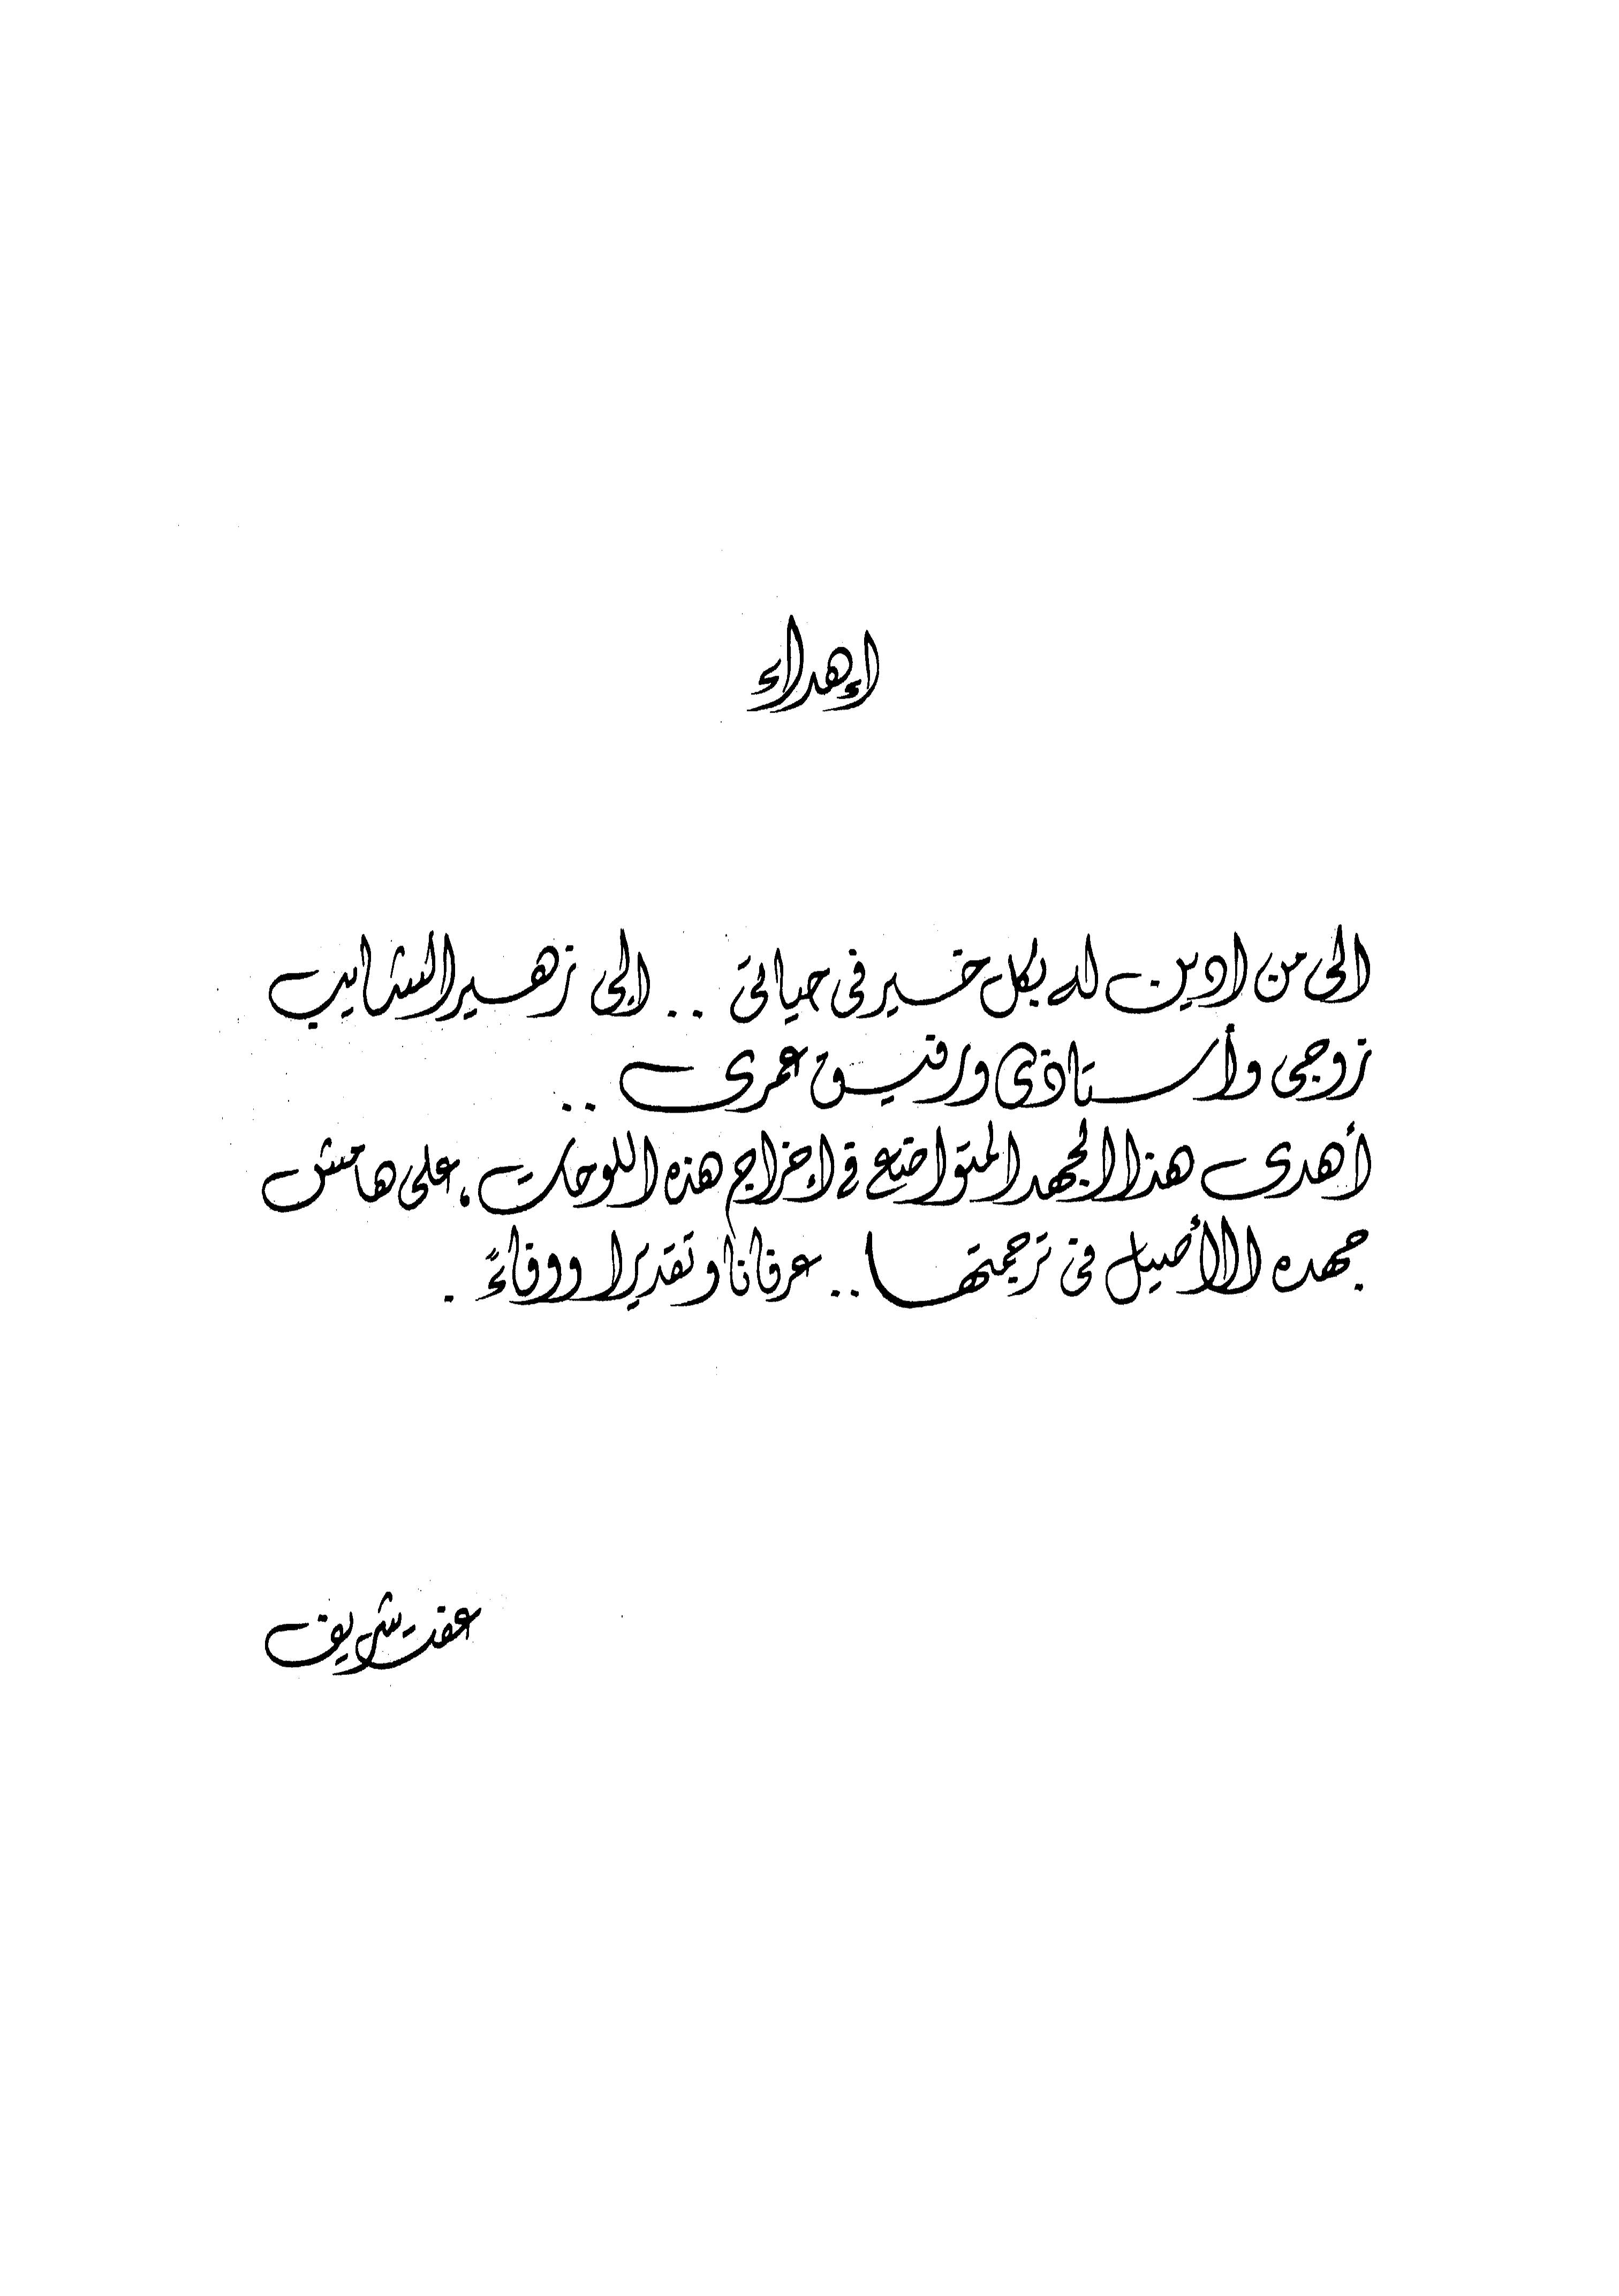 إهداء
الى من ادين له بكل خير فى حياتى .. الى زهير الشايب
زوجى وأستاذى ورفيق عمرى ..
أهدى هذا الجهد المتواضع في إخراج هذه اللوحات، على هامش
جهده الأصيل فى ترجمتها .. عرفانا وتقديرا ووفاءً .
عفت شريف